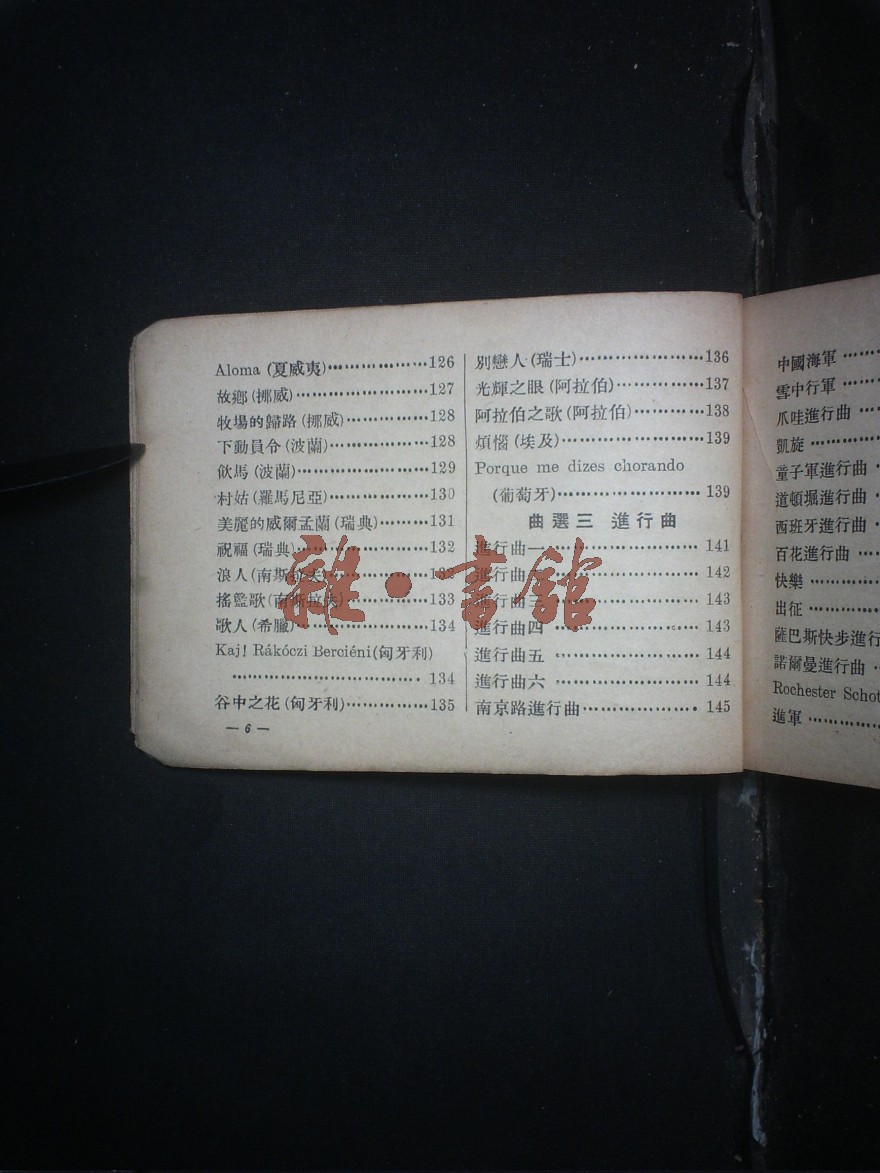 Aloma (夏威夷)………………126
故鄉(挪威)……………………127
牧場的歸路(挪威)……………128
下動員令(波蘭)………………128
飲馬(波蘭)……………………129
村姑(羅馬尼亞)………………130
美麗的威爾孟蘭(瑞典)………131
祝福(瑞典)……………………132
浪人(南斯拉夫)
搖籃歌(南斯拉夫)……………133
歌人(希臘)……………………134
Kaj! Rákóczi Berciéni(匈牙利)
……………………………134
谷中之花(匈牙利)……………135
— 6 —
別戀人(瑞士)…………………136
光輝之眼(阿拉伯)……………137
阿拉伯之歌(阿拉伯)…………138
煩惱(埃及)……………………139
Porque me dizes chorando
(葡萄牙)……………………139
曲選三 進行曲
進行曲一………………………141
進行曲二………………………142
進行曲三………………………143
進行曲四………………………143
進行曲五………………………144
進行曲六………………………144
南京路進行曲…………………145
中國海軍……
雪中行軍……
爪哇進行曲…
凱旋…………
童子軍進行曲
道頓堀進行曲
西班牙進行曲
百花進行曲…
快樂…………
出征…………
薩巴斯快步進行
諾爾曼進行曲
Rochester Schot
進軍…………
雜·書館